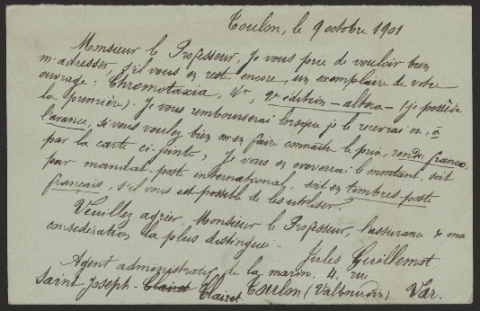 Toulon, le 9 octobre 1901
Monsieur le Professeur, Je vous prie de vouloir bien
m'adresser, s'il vous en reste encore, un exemplaire de votre
ouvrage: Chromotaxia, édition - altera - (je possède
la première). Je vous rembourserai lorsque je le recevrai ou, à
l'avance, si vous voulez bien m'en faire connaître le prix, rendu franco,
par la carte ci-jointe, Je vous en enverrai le montant, soit
par mandat-poste international, soit en timbres-poste
français, s'il vous est possible de les utiliser.
Veuillez agréer, Monsieur le Professeur, l'assurance de ma
considération la plus distinguée.
Jules Guillemot
Agent administratif de la marine, 4, rue
Saint Joseph - Clairet Clairet Toulon (Valbourdin) Var.